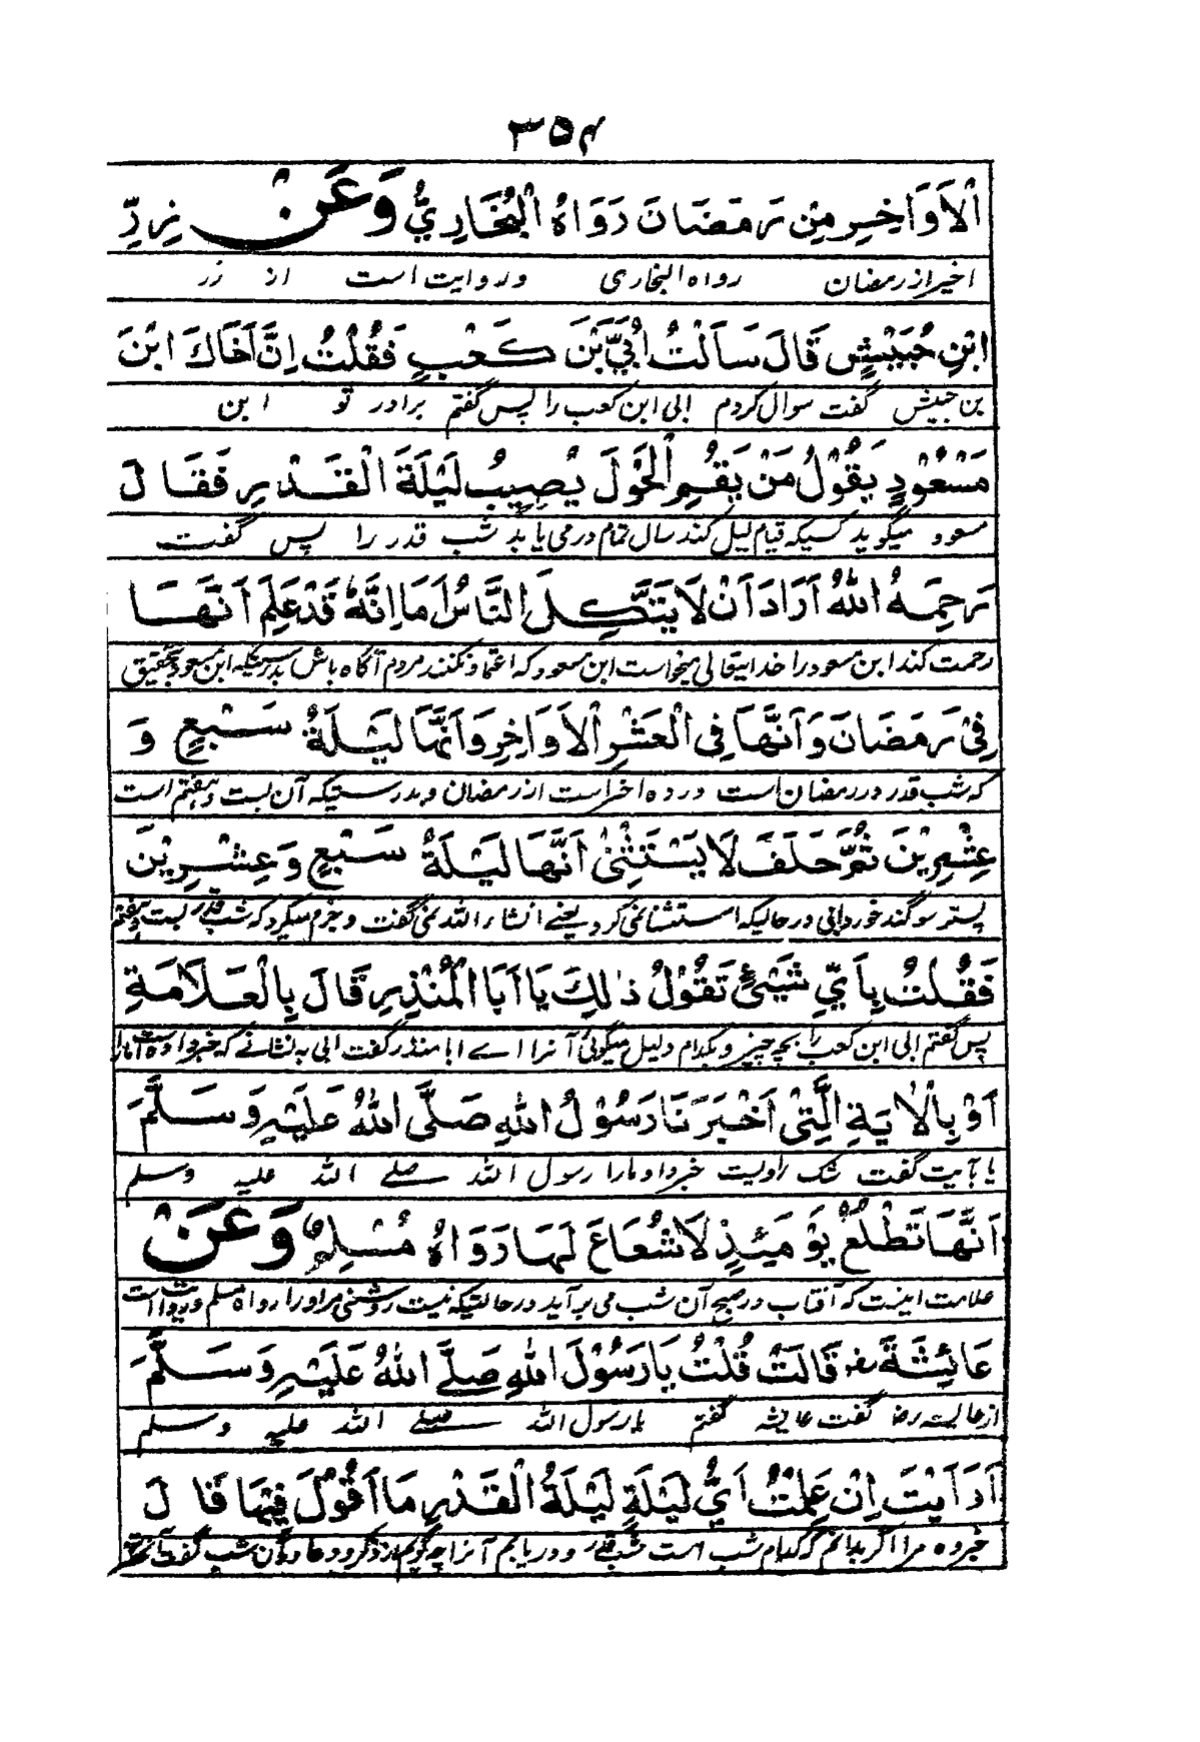 ۳۵۴
اْلاَوَاخِرِ مِنْ رَمَضَانَ رَوَاهُ الْبُخَارِيُّ وَعَنْ زِرِّ
اخیر از رمضان رواه البخاری و روایت است از زر
ابْنِ حُبَيْشٍ قَالَ سَاَلْتُ اُبَيَّ بْنَ كَعْبٍ فَقُلْتُ اِنَّ اَخَاكَ ابْنَ
بن حبیش گفت سوال کردم ابی ابن کعب را پس گفتم برادر تو ابن
مَسْعُوْدٍ يَقُوْلُ مَنْ يَقُمِ الْحَوْلَ يُصِيْبُ لَيْلَةَ الْقَدْرِ فَقَالَ
مسعود میگوید کسیکه قیام لیل کند سال تمام در می یابد شب قدر را پس گفت
رَحِمَهُ اللهُ اَرَادَ اَنْ لَا يَتَّكِلَ النَّاسُ اَمَا اِنَّهُ قَدْ عَلِمَ اَنَّهَا
رحمت کند ابن مسعود را خدا یتعالی میخواست ابن مسعود که اعتماد نکنند مردم آگاه باش بدرستیکه ابن مسعود بتحقیق
فِيْ رَمَضَانَ وَاَنَّهَا فِى الْعَشْرِ اْلاَوَاخِرِ وَاَنَّهَا لَيْلَةُ سَبْعٍ وَ
که شب قدر در رمضان است در ده اخر است از رمضان و بدرستیکه آن بست و هفتم است
عِشْرِيْنَ ثُمَّ حَلَفَ لَا يَسْتَثْنِيْ اَنَّهَا لَيْلَةُ سَبْعٍ وَعِشْرِيْنَ
پستر سوگند خورد ابی در حالیکه استثنا نمی کرد یعنے انشاء الله نمی گفت و جزم میکرد که شب قدر بست و هفتم
فَقُلْتُ بِاَيِّ شَيْئٍ تَقُوْلُ ذٰلِكَ يَا اَبَا الْمُنْذِرِ قَالَ بِالْعَلَامَةِ
پس گفتم ابی ابن کعب را بچه چیز و بکدام دلیل میگوئی آنرا اے ابا منذر گفت ابی به نشانے که خبر داده است مارا
اَوْ بِاْلاٰيَةِ الَّتِيْ اَخْبَرَنَا رَسُوْلُ اللهِ صَلَّى اللهُ عَلَيْهِ وَسَلَّمَ
یا بآیت گفت شک راویست خبر داد مارا رسول الله صلے الله علیه وسلم
اَنَّهَا تَطْلُعُ يَوْمَئِذٍ لَا شُعَاعَ لَهَا رَوَاهُ مُسْلِمٌ وَعَنْ
علامت اینست که آفتاب در صبح آن شب می برآید در حالتیکه نیست روشنی مر او را رواه مسلم و روایت است
عَائِشَةَ رض قَالَتْ قُلْتُ يَا رَسُوْلَ اللهِ صَلَّے اللهُ عَلَيْهِ وَسَلَّمَ
از عایشه رض گفت عایشه گفتم یا رسول الله صلے الله علیه وسلم
اَرَاَيْتَ اِنْ عَلِمْتُ اَيُّ لَيْلَةٍ لَيْلَةُ الْقَدْرِ مَا اَقُوْلُ فِيْهَا قَالَ
خبر ده مرا اگر بدانم که کدام شب است شب قدر و دریابم آنرا چه گویم از ذکر و دعا در آن شب گفت